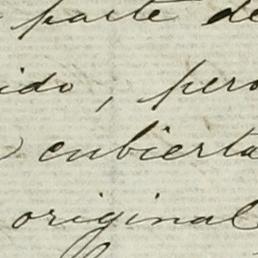 parte de
ido, pero
cubierta
original